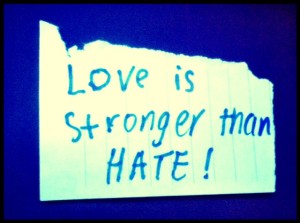 LOVE is
stronger than
HATE!